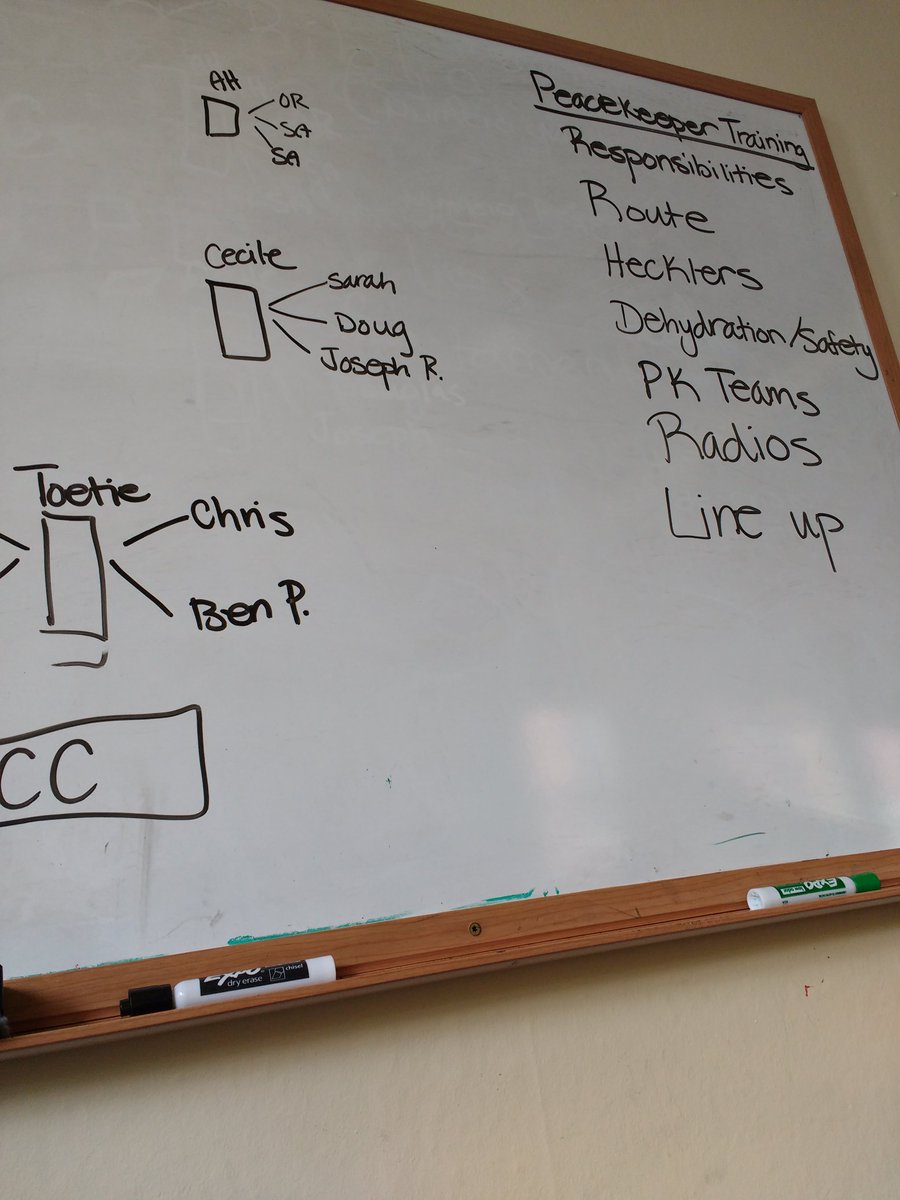 AH
OR
SA
SA
Cecile
Sarah
Doug
Joseph R.
Toetie
Chris
Ben P.
CC
Peacekeeper Training
Responsibilities
Route
Hecklers
Dehydration/Safety
PK Teams
Radios
Line up
EXPO
dry erase
chisel
EXPO